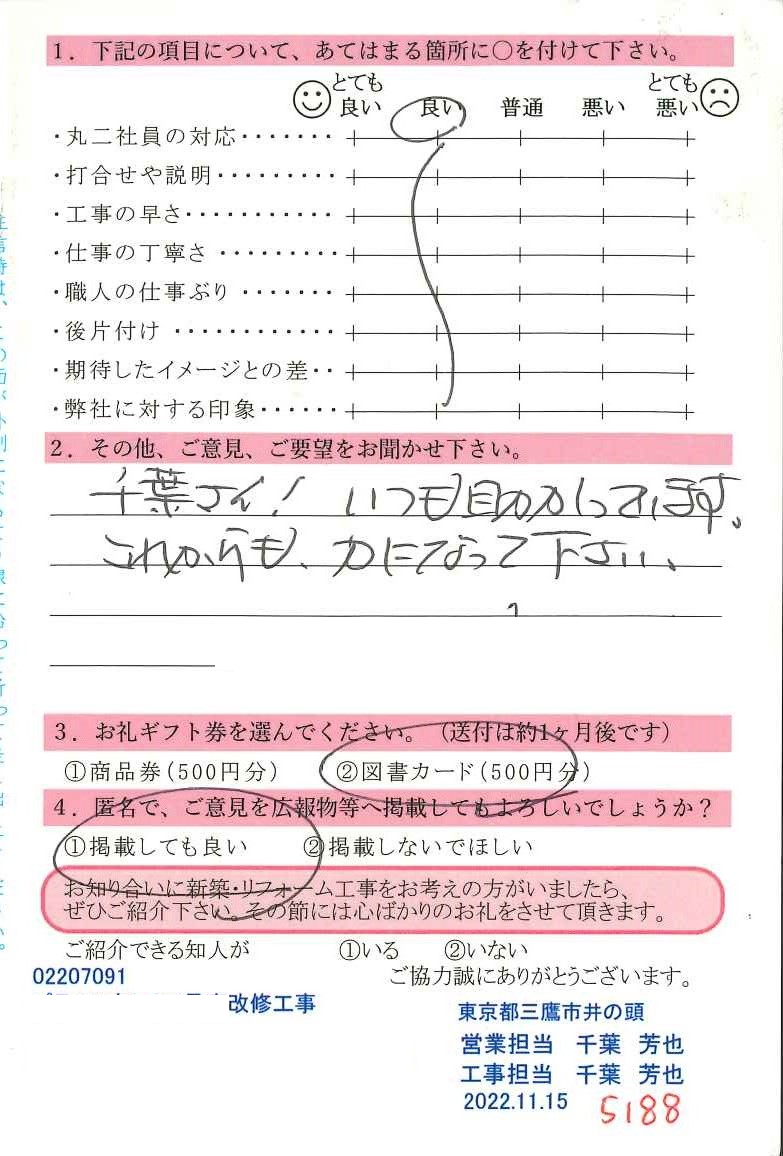 1．下記の項目について、あてはまる箇所に○を付けて下さい。
とても良い 良い 普通 悪い とても悪い
・丸二社員の対応・・・・・・・
・打合せや説明・・・・・・・・・
・工事の早さ・・・・・・・・・・・
・仕事の丁寧さ・・・・・・・・・
・職人の仕事ぶり・・・・・・・
・後片付け・・・・・・・・・・・・
・期待したイメージとの差・・
・弊社に対する印象・・・・・・
2．その他、ご意見、ご要望をお聞かせ下さい。
千葉さん！ いつも助かっています。
これからも、力になって下さい。
3．お礼ギフト券を選んでください。（送付は約1ヶ月後です）
①商品券（500円分） ②図書カード（500円分）
4．匿名で、ご意見を広報物等へ掲載してもよろしいでしょうか？
①掲載しても良い ②掲載しないでほしい
お知り合いに新築・リフォーム工事をお考えの方がいましたら、
ぜひご紹介下さい。その節には心ばかりのお礼をさせて頂きます。
ご紹介できる知人が ①いる ②いない
ご協力誠にありがとうございます。
02207091
改修工事
東京都三鷹市井の頭
営業担当 千葉 芳也
工事担当 千葉 芳也
2022.11.15
5188